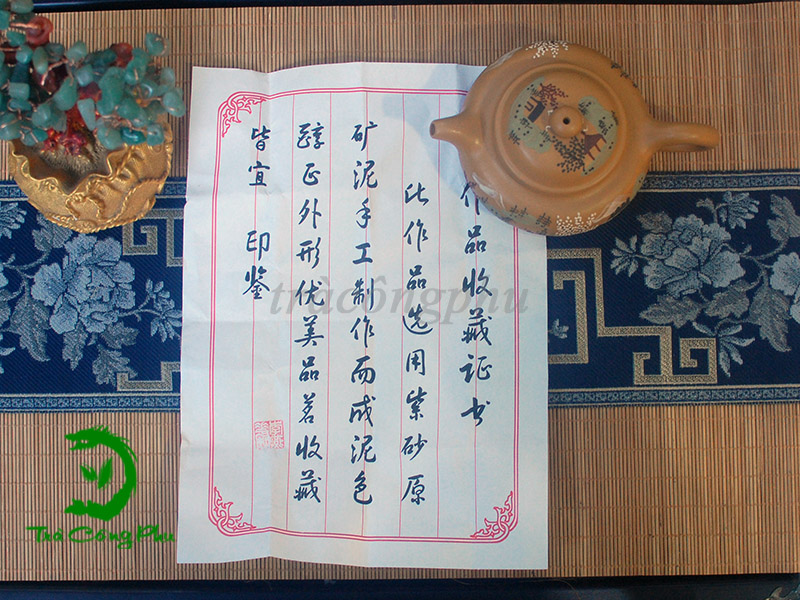 作品收藏证书
此作品选用紫砂原
矿泥手工制作而成泥色
醇正外形优美品茗收藏
皆宜 印鉴
tràcôngphu
Trà Công Phu